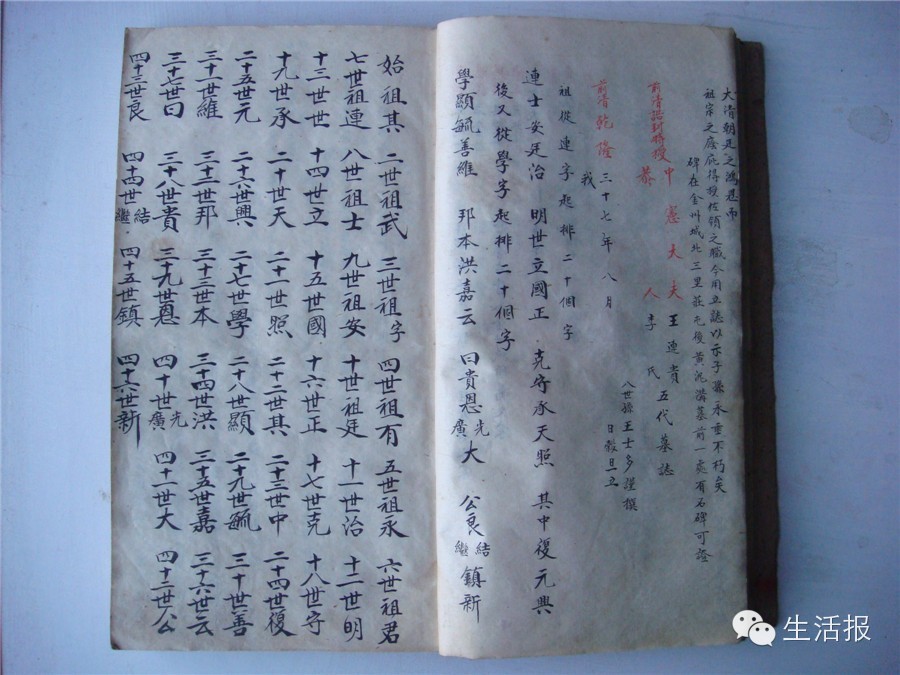 大清朝廷之鴻而
祖宗之廕庇得授佐領之職今用立誌以示子孫永垂不朽矣
碑在金州城北三里莊屯後黃泥溝墓前一處有石碑可證
前清誥封特授中憲大夫 王連貴五代墓誌
恭人 李氏
八世孫王士多謹撰
前清乾隆三十七年八月 日穀旦立
我
祖從連字起排二十個字
連士安廷治 明世立國正 克守承天照 其中復元興
後又從學字起排二十個字
學顯毓善維 邦本洪嘉云 曰貴恩先廣大 公良結繼鎮新
始祖其 二世祖武 三世祖字 四世祖有 五世祖永 六世祖君
七世祖連 八世祖士 九世祖安 十世祖廷 十一世治 十二世明
十三世世 十四世立 十五世國 十六世正 十七世克 十八世守
十九世承 二十世天 二十一世照 二十二世其 二十三世中 二十四世復
二十五世元 二十六世興 二十七世學 二十八世顯 二十九世毓 三十世善
三十一世維 三十二世邦 三十三世本 三十四世洪 三十五世嘉 三十六世云
三十七世曰 三十八世貴 三十九世恩 四十世先廣 四十一世大 四十二世公
四十三世良 四十四世結繼 四十五世鎮 四十六世新
生活报